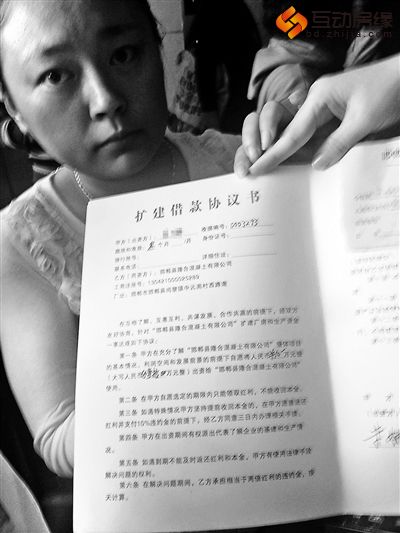 互动房缘
bd.zhijia.com
扩建借款协议书
甲方（出资方）
收据编号：0003293
借款期限：
个月
身份证号：
银行账号：
详细住址：
联系电话：
乙方（用资方）：邯郸县隆合混凝土有限公司
工商注册号：130421000025289
厂址：邯郸市邯郸县尚璧镇中云南村西路南
在互相了解、互惠互利、共谋发展、合作共赢的前提下，经双方
友好协商，针对“邯郸县隆合混凝土有限公司”扩建厂房和生产资金
一事达成如下协议：
第一条 甲方在充分了解“邯郸县隆合混凝土有限公司”整体项目
的基本情况、利润空间和发展前景的前提下自愿将人民币
万元整
（大写人民币
万元整）出资给“邯郸县隆合混凝土有限公司”
使用。
第二条 在甲方自愿选定的期限内只能领取红利，不能收回本金。
第三条 如遇特殊情况甲方坚持提前收回本金的，在甲方退还该
红利并支付10%违约金的前提下，经乙方同意三日内办理相关手续。
第四条 甲方在出资期间有权派出代表了解企业的基建和生产情
况。
第五条 如遇到期不能及时返还红利和本金，甲方有使用法律手段
解决问题的权利。
第六条 在解决问题期间，乙方承担相当于两倍红利的违约金，按
天计算。